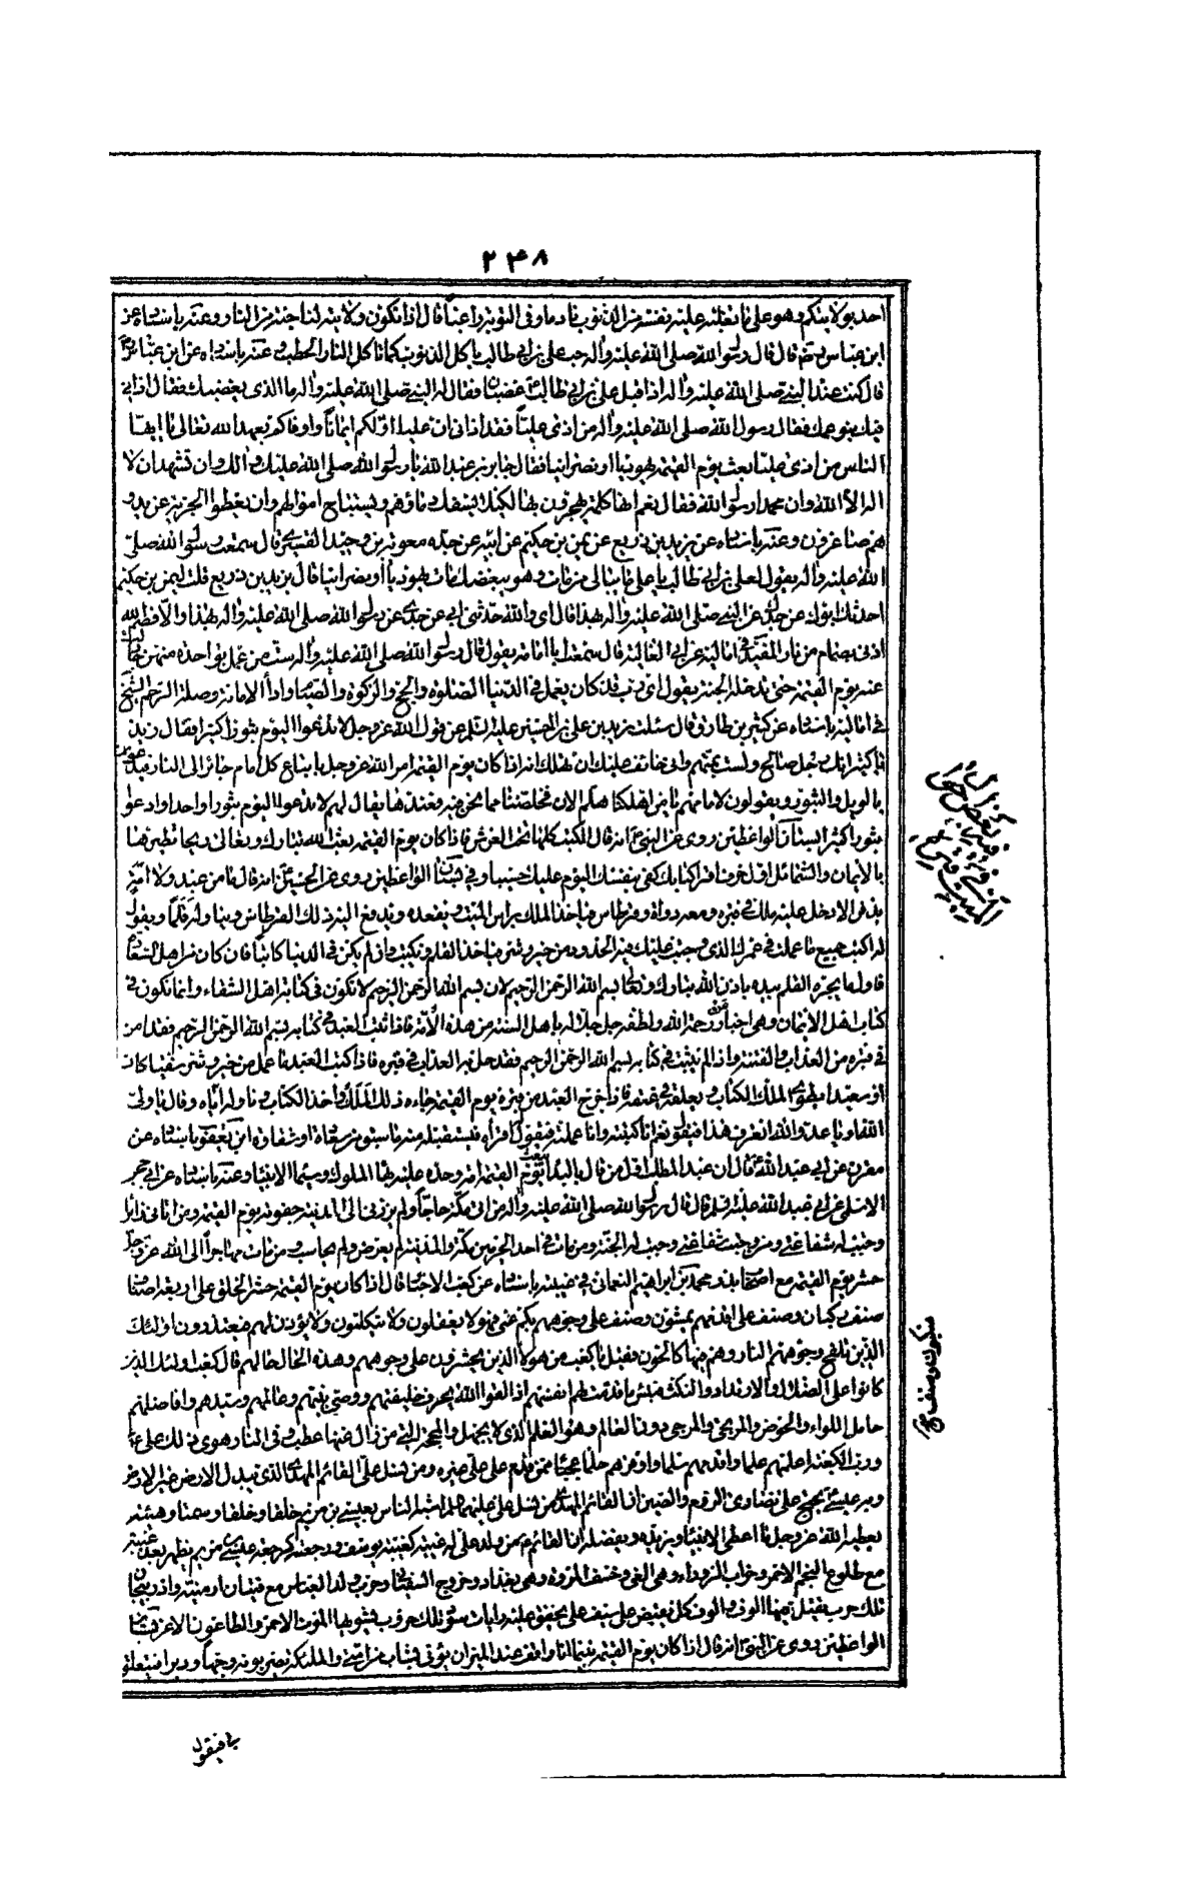 ۲۳۸
احد بولايتكم وهو على ما تغلبه عليه نفسه من الذنوب نادما وفى التوبة راغبا قال اذا تكون ولايته لنا جنة من النار وعنه باسناده عن
ابن عباس قال قال رسول الله صلى الله عليه واله حب على بن ابى طالب ياكل الذنوب كما تاكل النار الحطب وعنه باسناده عن ابن عباس
قال كنت عند النبى صلى الله عليه واله اذ اقبل على بن ابى طالب غضبان فقال له النبى صلى الله عليه واله ما الذى يغضبك فقال اذانى
فيك بنو عمك فقال رسول الله صلى الله عليه واله من اذى عليا فقد اذانى ان عليا اولكم ايمانا واوفاكم بعهد الله تعالى يا ايها
الناس من اذى عليا بعث يوم القيمة يهوديا او نصرانيا فقال جابر بن عبد الله يا رسول الله صلى الله عليك والك وان شهد ان لا
اله الا الله وان محمدا رسول الله فقال نعم انها كلمة يحجزون بها لكيلا يسفك دماؤهم ويستباح اموالهم وان يعطوا الجزية عن يد و
هم صاغرون وعنه باسناده عن يزيد بن زريع عن بهز بن حكيم عن ابيه عن جده معوية بن حيدة القشيرى قال سمعت رسول الله صلى
الله عليه واله يقول لعلى بن ابى طالب يا على ما يبالى من مات وهو يبغضك مات يهوديا او نصرانيا قال يزيد بن زريع قلت لبهز بن حكيم
احدثك ابوك عن جدك عن النبى صلى الله عليه واله بهذا قال اى والله حدثنى ابى عن جدى عن رسول الله صلى الله عليه واله بهذا والا فظم الله
اذنى بصمام من نار المفيد فى اماليه عن ابى الغالية قال سمعت ابا امامة يقول قال رسول الله صلى الله عليه واله ست من عمل بواحدة منهن جادلت
عنه يوم القيمة حتى تدخله الجنة يقول اى رب قد كان يعمل فى الدنيا الصلوة والحج والزكوة والصيام واداء الامانة وصلة الرحم الشيخ
فى اماليه باسناده عن كثير بن طارق قال سئلت زيد بن على بن الحسين عليه السلم عن قول الله عز وجل لا تدعوا اليوم ثبورا كثيرا فقال زيد
يا كثير انك رجل صالح ولست بمتهم وانى خائف عليك ان تهلك انه اذا كان يوم القيمة امر الله عز وجل باتباع كل امام جائر الى النار فيدعون
بالويل والثبور ويقولون لامامهم يا من اهلكنا هلم الان فخلصنا مما نحن فيه فعندها يقال لهم لا تدعوا اليوم ثبورا واحدا وادعوا
ثبورا كثيرا بستان الواعظين روى عن النبى انه قال الكتب كلها تحت العرش فاذا كان يوم القيمة بعث الله تبارك وتعالى ريحا تطيرها
بالايمان والشمائل اول حرف اقرا كتابك كفى بنفسك اليوم عليك حسيبا وفى بستان الواعظين روى عن الحسن انه قال ما من عبد ولا امة
يدفن الا دخل عليه ملك فى قبره ومعه دواة وقرطاس فياخذ الملك براس الميت ويقعده ويدفع اليه ذلك القرطاس ويناوله قلما ويقول
له اكتب جميع ما عملت فى عمرك الذى وجبت عليك فيه الحدود من خير وشر فياخذ القلم ويكتب وان لم يكن فى الدنيا كاتبا فان كان من اهل الشقاء
فاول ما يجره القلم بيده باذن الله تبارك وتعالى بسم الله الرحمن الرحيم لان بسم الله الرحمن الرحيم لا تكون فى كتابة اهل الشقاء وانما تكون فى
كتاب اهل الايمان وهى اخبار من رحمة الله ولطفه جل جلاله باهل السنة من هذه الامة فاذا اثبت العبد فى كتابه بسم الله الرحمن الرحيم فقد امن
فى قبره من العذاب والفتنة واذا لم يثبت فى كتابه بسم الله الرحمن الرحيم فقد حل به العذاب فى قبره فاذا كتب العبد ما عمل من خير وشر شقيا كان
او سعيدا يطوى الملك الكتاب ويعلقه فى عنقه فاذا خرج العبد من قبره يوم القيمة جاءه ذلك الملك واخذ الكتاب وناوله اياه وقال يا ولى
الله او يا عدو الله اتعرف هذا فيقول نعم انا كتبته وانا عملته فيقول اقراه فيستقبله منه ما سبق من سعادة او شقاوة ابن يعقوب باسناده عن
مقرن عن ابى عبد الله قال ان عبد المطلب اول من قال بالبداء يبعث يوم القيمة امة وحده عليه بهاء الملوك وسيماء الانبياء وعنه باسناده عن ابى حجر
الاسلمى عن ابى عبد الله عليه السلم قال قال رسول الله صلى الله عليه واله من اتى مكة حاجا ولم يزرنى الى المدينة جفوته يوم القيمة ومن اتانى زائرا
وجبت له شفاعتى ومن وجبت له شفاعتى وجبت له الجنة ومن مات فى احد الحرمين مكة والمدينة لم يعرض ولم يحاسب ومن مات مهاجرا الى الله عز وجل
حشر يوم القيمة مع اصحاب بدر محمد بن ابراهيم النعمانى فى غيبته باسناده عن كعب الاحبار قال اذا كان يوم القيمة حشر الخلق على اربعة اصناف
صنف ركبان وصنف على اقدامهم يمشون وصنف على وجوههم بكم عمى فهم لا يعقلون ولا يتكلمون ولا يؤذن لهم فيعتذرون اولئك
الذين تلفح وجوههم النار وهم فيها كالحون فقيل يا كعب من هؤلاء الذين يحشرون على وجوههم وهذه الحال حالهم قال كعب اولئك الذين
كانوا على الضلال والارتداد والنكث فبئس ما قدمت لهم انفسهم اذا لقوا الله بحرب خليفتهم ووصى نبيهم وعالمهم وسيدهم وفاضلهم
حامل اللواء والحوض والمرتجى والمرجى دون العالم وهو العلم الذى لا يجهل والمحجة التى من زال عنها عطب وفى النار هوى ذلك على
ورب الكعبة اعلمهم علما واقدمهم سلما واوفرهم حلما عجبا ممن قدم على على غيره ومن نسل على القائم المهدى الذى يبدل الارض غير الارض
وبه عيسى يحتج على نصارى الروم والصين ان القائم المهدى من نسل على عليهما السلم اشبه الناس بعيسى بن مريم خلقا وخلقا وسمتا وهيئة
يعطيه الله عز وجل ما اعطى الانبياء ويزيده ويفضله ان القائم من ولد على له غيبة كغيبة يوسف ورجعة كرجعة عيسى بن مريم يظهر بعد غيبته
مع طلوع النجم الاحمر وخراب الزوراء وهى الرى وخسف المزورة وهى بغداد وخروج السفيانى وحرب ولد العباس مع فتيان ارمنية واذربيجان
تلك حرب يقتل فيها الوف والوف كل يقبض على سيف محلى يخفق عليه رايات سود تلك حروب يشوبها الموت الاحمر والطاعون الاغبر بستان
الواعظين روى عن النبى انه قال اذا كان يوم القيمة بينما انا واقف عند الميزان يؤتى بشاب من امتى والملئكة يضربونه وجها ودبرا فيتعلق
بى فيقول